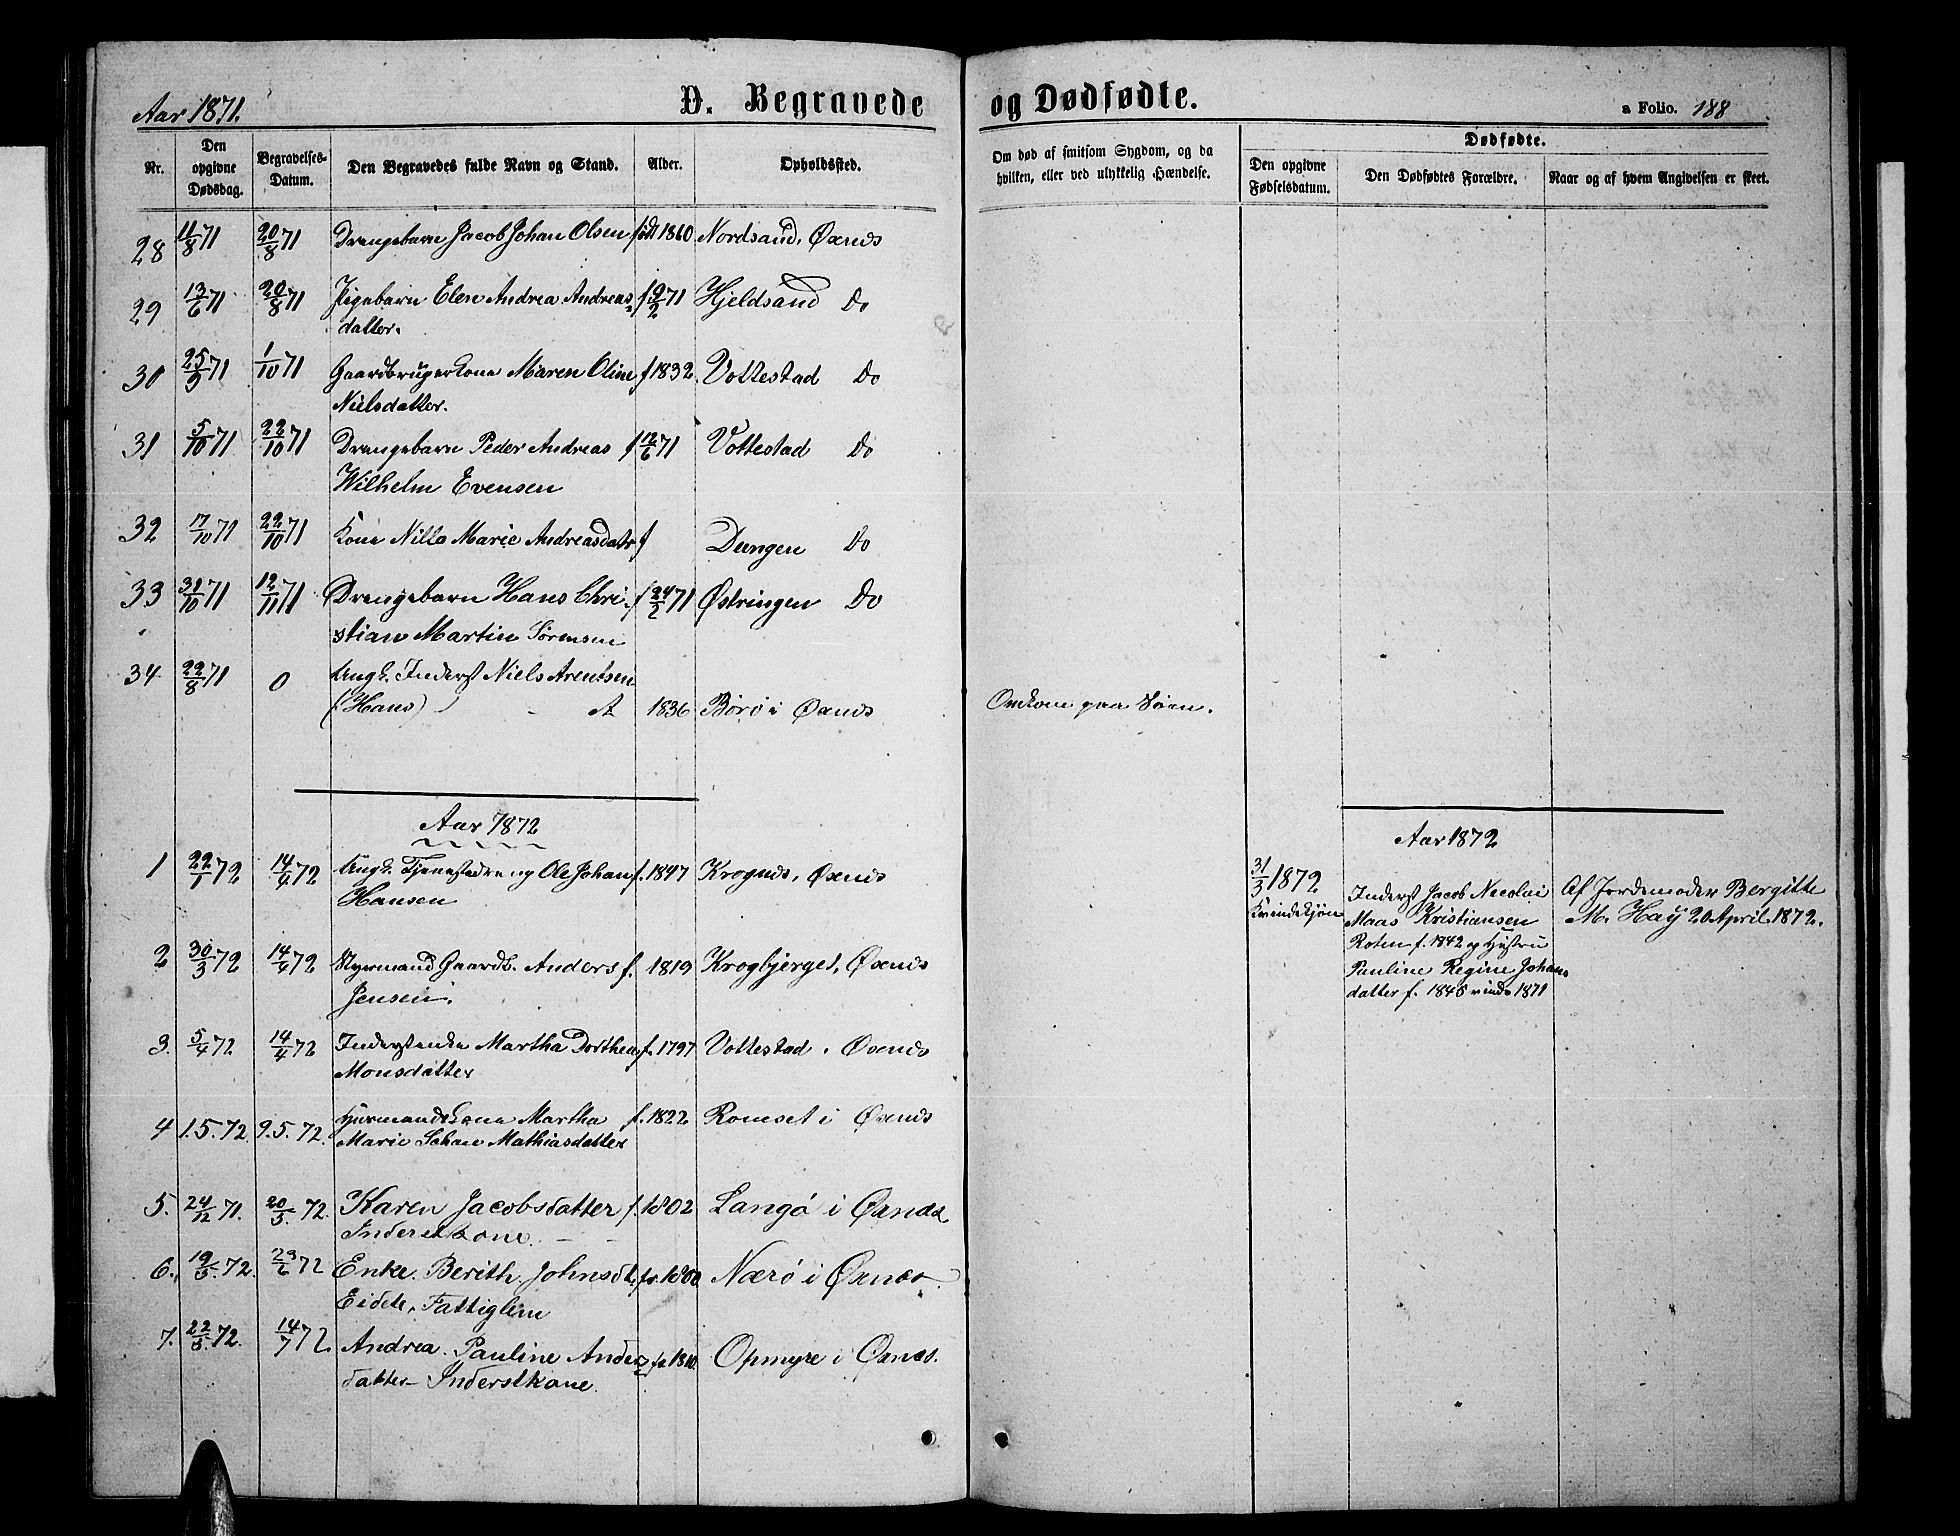 Aar 1871.
D. Begravede og Dødfødte.
a Folio. 188
Nr.
Den opgivne Dødsdag.
Begravelses-Datum.
Den Begravedes fulde Navn og Stand.
Alder.
Opholdssted.
Om død af smitsom Sygdom, og da hvilken, eller ved ulykkelig Hændelse.
Dødfødte.
Den opgivne Fødselsdatum.
Den Dødfødtes Forældre.
Naar og af hvem Angivelsen er skeet.
28 11/8 71 20/8 71 Drengebarn Jacob Johan Olsen født 1860 Nordsand, Øxnes
29 13/6 71 20/8 71 Pigebarn Elen Andrea Andreas- f 9/2 71 Hjeldsand Do
datter.
30 25/9 71 1/10 71 Gaardbrugerkone Maren Oline f 1832. Vottestad Do
Nielsdatter.
31 5/10 71 22/10 71 Drengebarn Peder Andreas f 12/6 71 Vottestad Do
Wilhelm Evensen
32 17/10 71 22/10 71 Kone Nilla Marie Andreasdatr f Dungen Do
33 31/10 71 12/11 71 Drengebarn Hans Chri- f 24/2 71 Østringen Do
stian Martin Sørensen
34 22/8 71 0 Ungk. Inderst Niels Arentsen
(Hans) 1836 Børø i Øxnes Omkom paa Søen.
Aar 1872
1 22/1 72 14/4 72 Ungk. Tjenestedreng Ole Johan f. 1847 Krognes, Øxnes
Hansen
2 30/3 72 14/4 72 Styrmand Gaardb. Anders f. 1819 Krogbjerget, Øxnes
Jensen.
3. 5/4 72 14/4 72 Inderstenke Martha Dorthea f. 1797 Vottestad. Øxnes
Monsdatter
4 1.5.72. 9.5.72. Huusmandskone Martha f. 1822 Romset i Øxnes
Marie Schan Mathiasdatter
5. 24/12 71. 20/5. 72. Karen Jacobsdatter f. 1802 Langø i Øxnes
Inderstkone.
6. 19/5. 72. 23/6 72 Enke. Berith. Johnsdt. fr. 1800 Nærø i Øxnes
Eidete, Fattiglem
7. 22/6. 72. 14/7 72 Andrea. Pauline Anders- fr 1810. Opmyre i Øxnes.
datter - Inderstkone.
Aar 1872
31/3 1872
Kvindekjøn
Inderst Jacob Nicolai
Maas Kristiansen
Roten f. 1842 og Hustru
Pauline Regine Johans
datter f. 1845 viede 1871
Af Jordemoder Bergitte
M. Hay 20 April 1872.